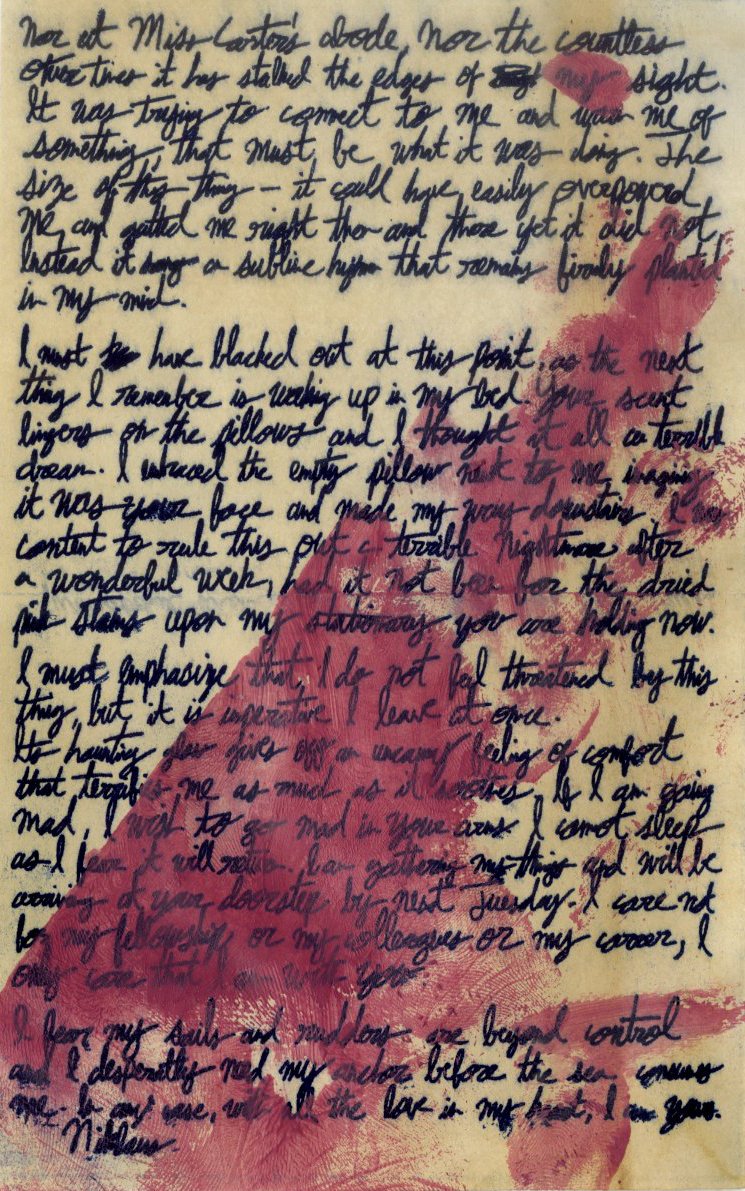 nor at Miss Carter's abode, nor the countless
other times it has stalked the edges of my sight.
It was trying to connect to me and warn me of
something, that must be what it was doing. The
size of this thing — it could have easily overpowered
me, and gutted me right then and there yet it did not,
Instead it sang a sublime hymn that remains firmly planted
in my mind.
I must have blacked out at this point, as the next
thing I remember is waking up in my bed. Your scent
lingers on the pillows and I thought it all a terrible
dream. I embraced the empty pillow next to me, imagining
it was your face and made my way downstairs. I was
content to rule this out a terrible Nightmare after
a wonderful week, had it not been for the dried
pink stains upon my stationary you are holding now.
I must emphasize that, I do not feel threatened by this
thing, but it is imperative I leave at once.
Its haunting glow gives off an uncanny feeling of comfort
that terrifies me as much as it soothes. If I am going
mad, I wish to go mad in your arms. I cannot sleep
as I fear it will return. I am gathering my things and will be
arriving at your doorstep by next Tuesday. I care not
for my fellowship or my colleagues or my career, I
only care that I am with you.
I fear my sails and rudders are beyond control
and I desperatly need my anchor before the sea consumes
me. In any case, with all the love in my heart, I am yours.
Niklaus.